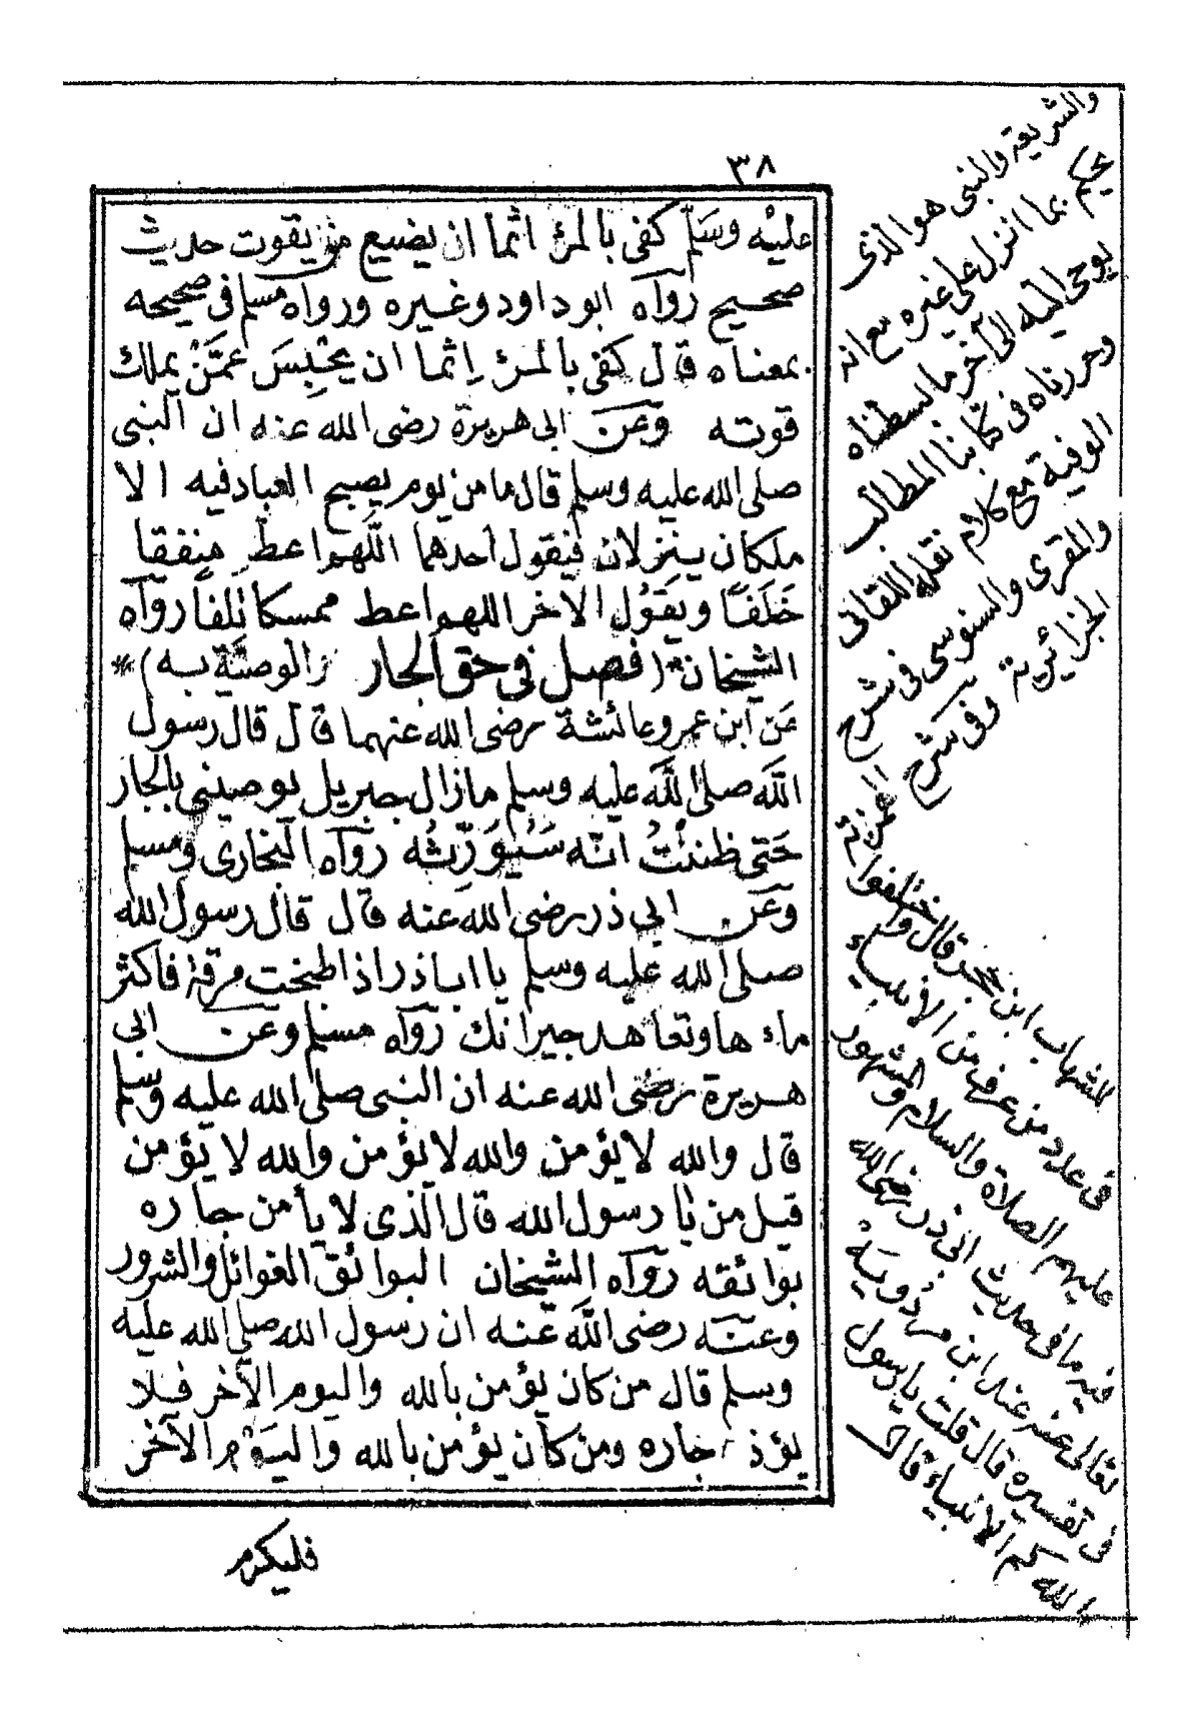 ٣٨
عليْه وسَلّم كفى بالمرْء اثما ان يضيع من يقوت حديث
صحيح رواه ابو داود وغيره ورواه مسلم فى صحيحه
بمعناه قال كفى بالمرْء إثما ان يحبِسَ عمَّنْ يملك
قوته وعَن ابى هريرة رضى الله عنه ان النبى
صلى الله عليه وسلم قال ما من يوم يصبح العباد فيه الا
ملكان ينزلان فيقول احدهما اللّهم اعط منفقا
خَلَفًا ويقَوُل الاخر اللهم اعط ممسكا تلفا رواه
الشيخان *(فصل فى حق الجار والوصيّة به)*
عَن ابن عمر وعائشة رضى الله عنهما قال قال رسول
اللّه صلى الله عليه وسلم ما زال جبريل يوصينى بالجار
حَتى ظننْتُ انّه سَيُوَرِّثُه رواه البخارى ومسلم
وعَن ابى ذر رضى الله عنه قال قال رسول الله
صلى الله عليه وسلم يا اباذر اذا طبخت مرقة فاكثر
ماءها وتعاهد جيرانك رواه مسلم وعن ابى
هريرة رضى الله عنه ان النبى صلى الله عليه وسلم
قال والله لا يؤمن والله لا يؤمن والله لا يؤمن
قيل من يا رسول الله قال الذى لا يأمن جاره
بوائقه رواه الشيخان البوائق الغوائل والشرور
وعنه رضى اللّه عنه ان رسول الله صلى الله عليه
وسلم قال من كان يؤمن بالله واليوم الآخر فلا
يؤذ جاره ومن كان يؤمن بالله واليَوْم الآخر
فليكرم
والشريعة والنبى هو الذى
يحكم بما انزل على غيره مع انه
يوحى اليه الى آخر ما بسطناه
وحررناه فى كتابنا المطالب
الوفية مع كلام نقله اللقانى
والمقرى والسنوسى فى شرح
الجزائرية وفى شرح
الهمزية
للشهاب ابن حجر قال واختلفوا
فى عدد من عرف من الانبياء
عليهم الصلاة والسلام والمشهور
فيه ما فى حديث ابى ذر رضى الله
تعالى عنه عند ابن مردويه
فى تفسيره قال قلت يا رسول
الله كم الانبياء قال